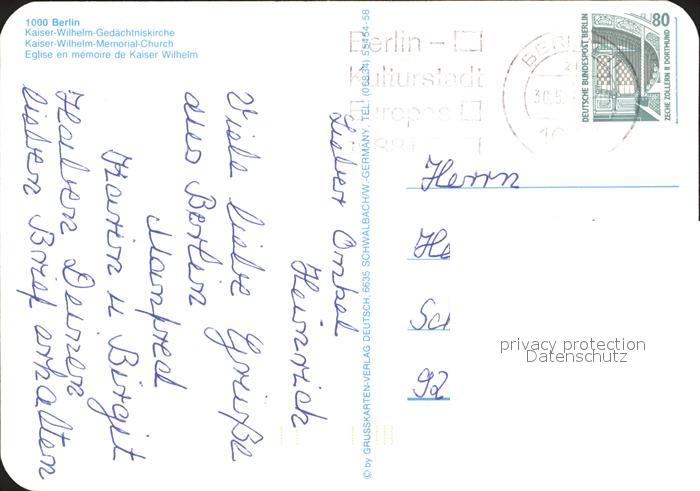 1000 Berlin
Kaiser-Wilhelm-Gedächtniskirche
Kaiser-Wilhelm-Memorial-Church
Eglise en mémoire de Kaiser Wilhelm
Lieber Onkel
Heinrich
Viele liebe Grüße
aus Berlin
Manfred
Karin u Birgit
Haben Deinen
lieben Brief erhalten
© by GRUSSKARTEN-VERLAG DEUTSCH, 6635 SCHWALBACH/W.-GERMANY, TEL. (06834) 55454-58
Berlin –
Kulturstadt
Europas
BERLIN
30.5.
80
DEUTSCHE BUNDESPOST BERLIN
ZECHE ZOLLERN II DORTMUND
Herrn
He
Sch
92
privacy protection
Datenschutz